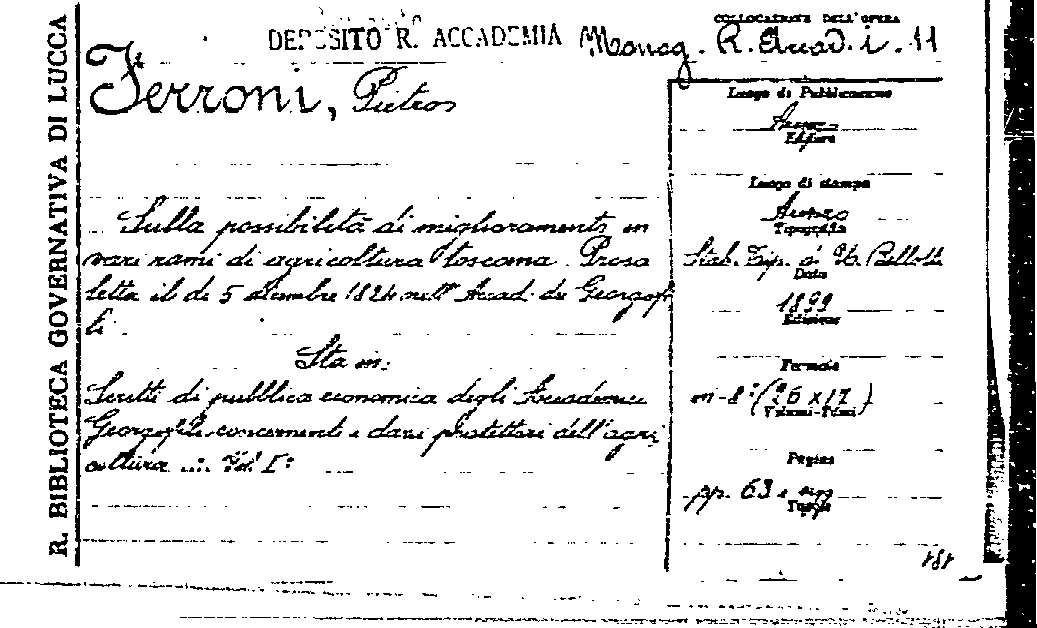 R. BIBLIOTECA GOVERNATIVA DI LUCCA
DEPOSITO R. ACCADEMIA
COLLOCAZIONE DELL'OPERA
Monog. R. Acad. i. 11
Ferroni, Pietro
Sulla possibilità di miglioramento in
vari rami di agricoltura toscana. Prosa
letta il dì 5 dicembre 1824 nell'Accad. dei Georgofi
li.
Sta in:
Scritti di pubblica economia degli Accademici
Georgofili concernenti i dazi protettori dell'agri
coltura ... Vol. I:
Luogo di Pubblicazione
Arezzo
Editore
Luogo di stampa
Arezzo
Tipografia
Stab. Tip. di U. Bellotti
Data
1899
Edizione
Formato
in-8° (26 x 17)
Volumi-Tomi
Pagine
pp. 63 e sgg
Tavole
181